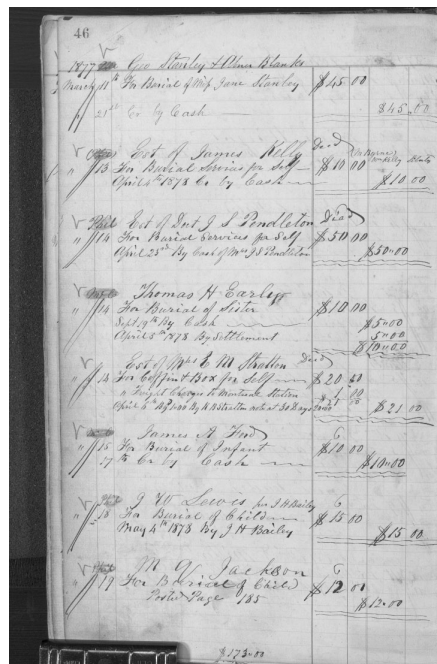 46
1877 Geo Stanley & Oliver Blanks
March 11th For Burial of Wife Jane Stanley $45 00
" 21st Cr by Cash $45.00
Est of James Kelly Died
" 13 For Burial Services for Self $10 00
April 4th 1878 Cr by Cash $10.00
Est of J S Pendleton Died
" 14 For Burial Services for Self $50 00
April 25th By Cash of Mrs J S Pendleton $50.00
Thomas H Early
" 14 For Burial of Sister $10 00
Sept 19th By Cash $5.00
April 5th 1878 By Settlement 5.00
$10.00
Est of Mrs E M Stratton Died
" 14 For Coffin & Box for Self $20 00
" Freight Charges to Station 1 00
April 5th $21 00 $21 00
James A Ford
" 15 For Burial of Infant $10 00
27th Cr by Cash $10.00
J W Lewis for J H Bailey
" 18 For Burial of Child $15 00
May 4th 1878 By J H Bailey $15 00
M G Jackson
" 19 For Burial of Child $12 00
Posted Page 185 $12.00
$173.00